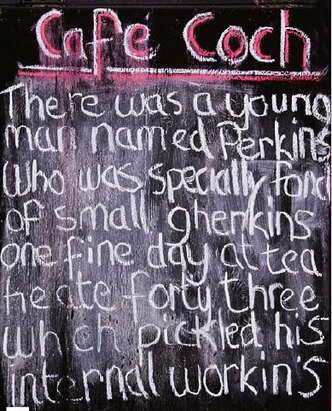 Cafe Coch
There was a young
man named Perkins
who was specially fond
of small gherkins
one fine day at tea
he ate forty three
which pickled his
internal workin's